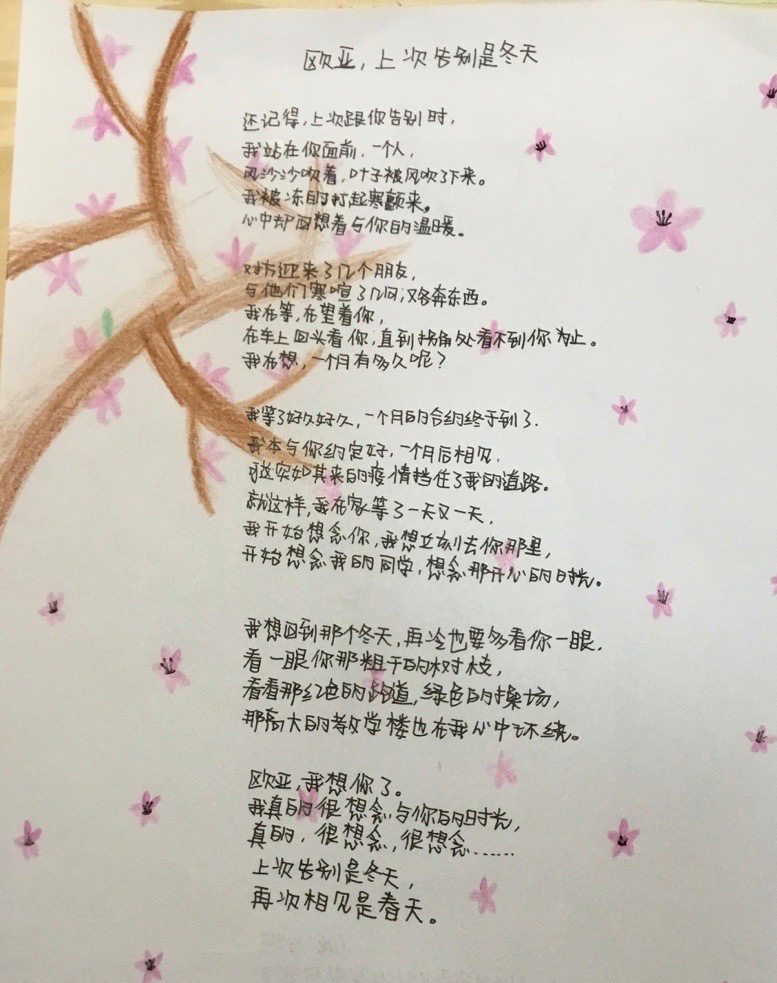 欧亚，上次告别是冬天
还记得，上次跟你告别时，
我站在你面前，一个人，
风沙沙吹着，叶子被风吹了下来。
我被冻的打起寒颤来。
心中却回想着与你的温暖。
对方迎来了几个朋友，
与他们寒喧了几句；又各奔东西。
我在等，在望着你，
在车上回头看你，直到拐角处看不到你为止。
我在想，一个月有多久呢？
我等了好久好久，一个月的合约终于到了.
我本与你约定好，一个月后相见.
可这突如其来的疫情挡住了我的道路。
就这样，我在家等了一天又一天，
我开始想念你，我想立刻去你那里，
开始想念我的同学，想念那开心的时光。
我想回到那个冬天，再冷也要多看你一眼.
看一眼你那粗干的树枝，
看看那红色的跑道，绿色的操场，
那高大的教学楼也在我心中环绕。
欧亚，我想你了。
我真的很想念与你的时光，
真的，很想念，很想念……
上次告别是冬天，
再次相见是春天。